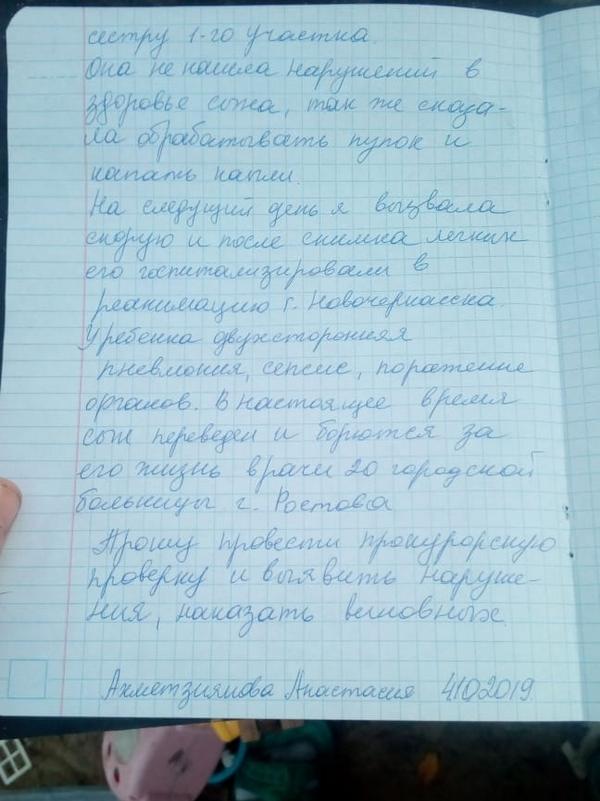 сестру 1-го участка.
Она не нашла нарушений в
здоровье сына, так же сказа-
ла обрабатывать пупок и
капать капли.
На следущий день я вызвала
скорую и после снимка легких
его госпитализировали в
реанимацию г. Новочеркасска.
У ребенка двухсторонняя
пневмония, сепсис, поражение
органов. В настоящее время
сын переведен и борются за
его жизнь врачи 20 городской
больницы г. Ростова
Прошу провести прокурорскую
проверку и выявить наруше-
ния, наказать виновных.
Ахметзиянова Анастасия 4.10.2019